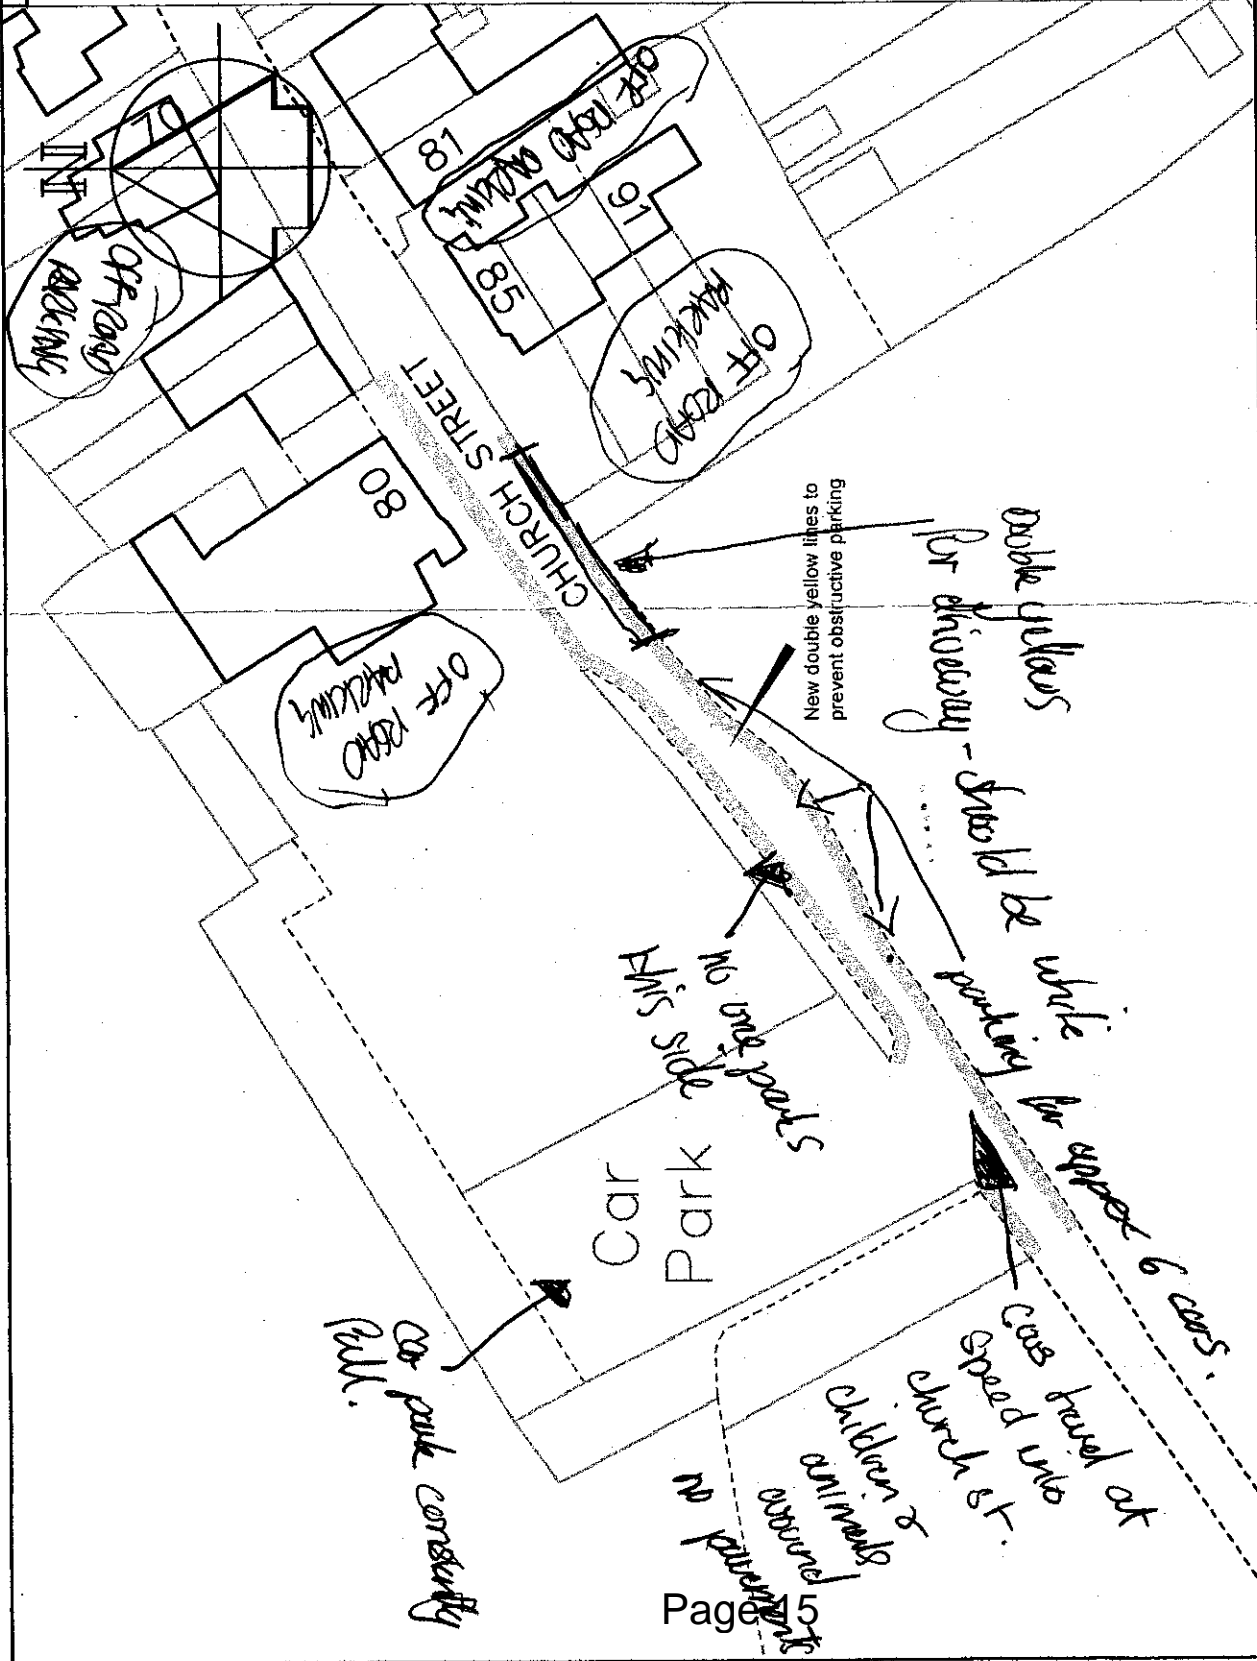 N
70
81
OFF ROAD
PARKING
OFF ROAD
PARKING
91
85
OFF ROAD
PARKING
CHURCH STREET
80
OFF ROAD
PARKING
New double yellow lines to
prevent obstructive parking
double yellows
for driveway - should be white
parking for appox 6 cars.
no one parks
this side
Car
Park
car park constantly
full.
cars travel at
speed into
church st.
children &
animals
around
no pavements
Page 15